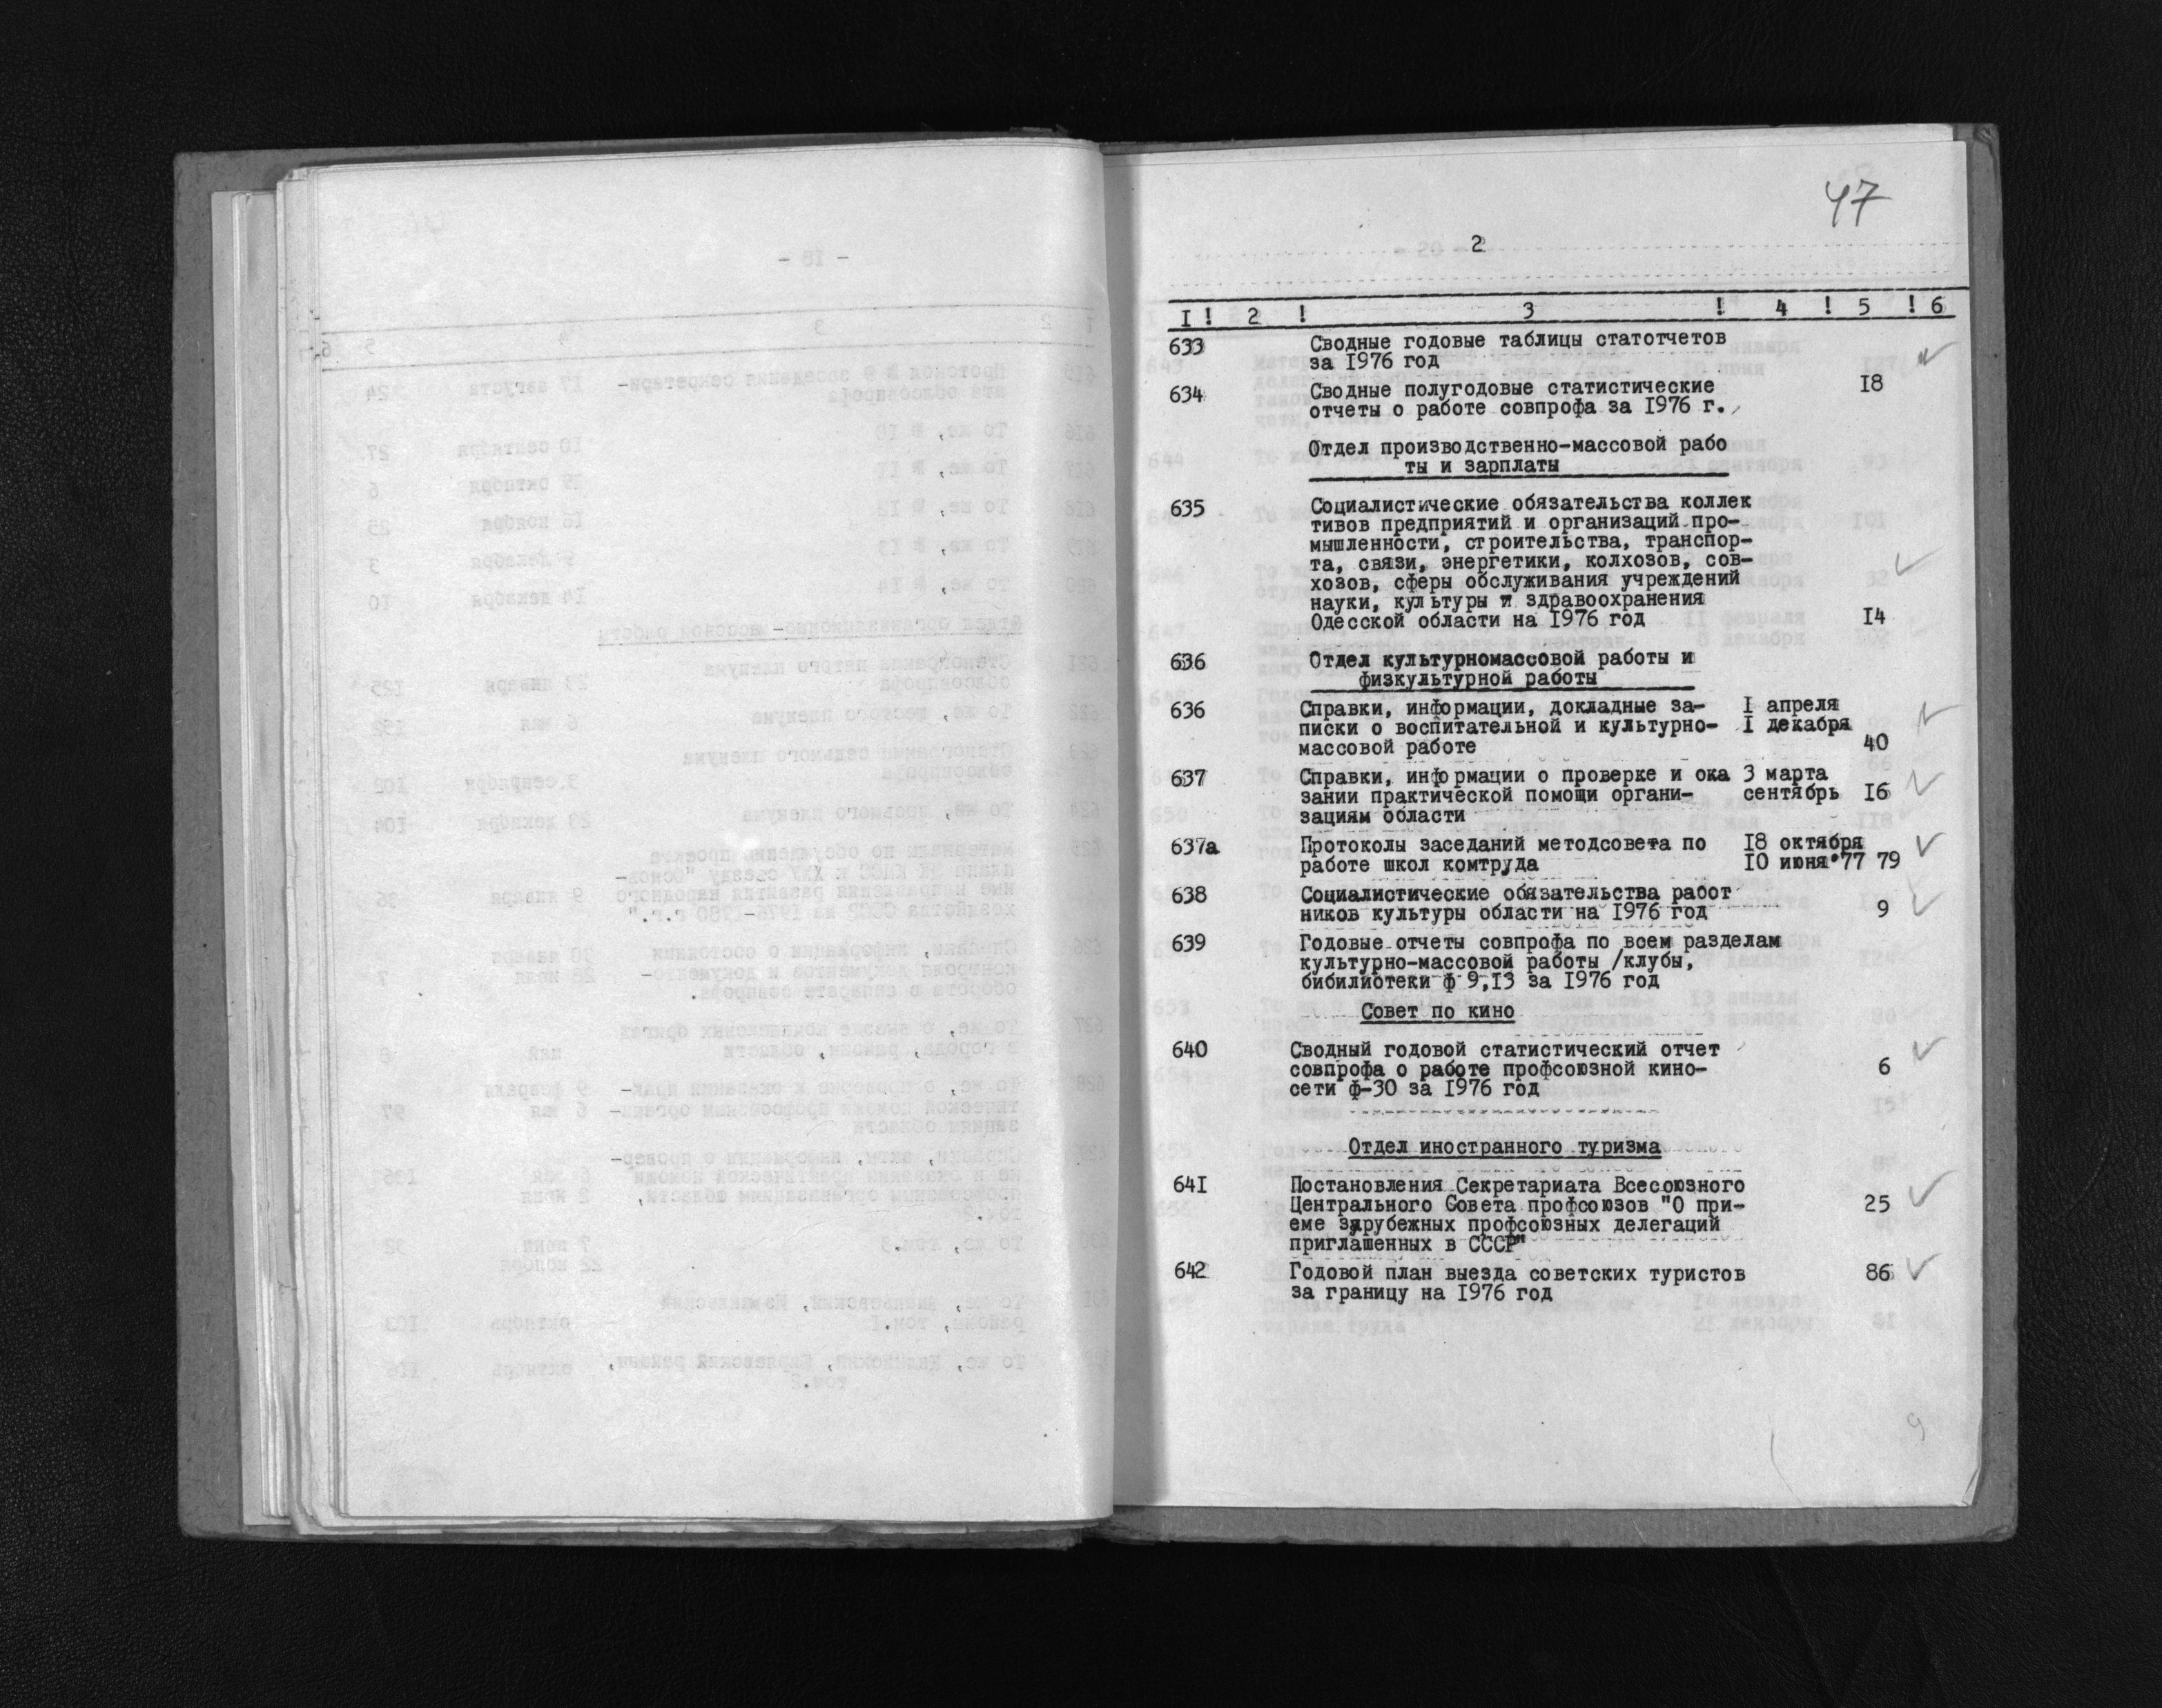 47
2
I ! 2 ! 3 ! 4 ! 5 ! 6
633 Сводные годовые таблицы статотчетов
за 1976 год
634 Сводные полугодовые статистические 18
отчеты о работе совпрофа за 1976 г.
Отдел производственно-массовой рабо
ты и зарплаты
635 Социалистические обязательства коллек
тивов предприятий и организаций про-
мышленности, строительства, транспор-
та, связи, энергетики, колхозов, сов-
хозов, сферы обслуживания учреждений
науки, культуры и здравоохранения
Одесской области на 1976 год 14
636 Отдел культурномассовой работы и
физкультурной работы
636 Справки, информации, докладные за- I апреля
писки о воспитательной и культурно- I декабря
массовой работе 40
637 Справки, информации о проверке и ока 3 марта
зании практической помощи органи- сентябрь 16
зациям области
637а Протоколы заседаний методсовета по 18 октября
работе школ комтруда 10 июня'77 79
638 Социалистические обязательства работ
ников культуры области на 1976 год 9
639 Годовые отчеты совпрофа по всем разделам
культурно-массовой работы /клубы,
бибилиотеки ф 9,13 за 1976 год
Совет по кино
640 Сводный годовой статистический отчет
совпрофа о работе профсоюзной кино- 6
сети ф-30 за 1976 год
Отдел иностранного туризма
641 Постановления Секретариата Всесоюзного
Центрального Совета профсоюзов "О при- 25
еме зарубежных профсоюзных делегаций
приглашенных в СССР"
642 Годовой план выезда советских туристов 86
за границу на 1976 год
9